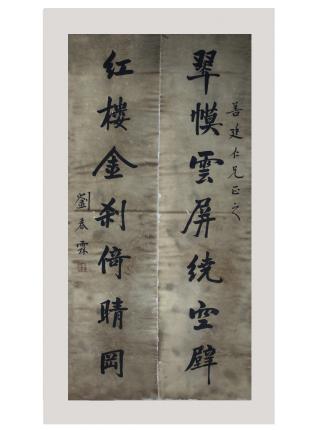 善建仁兄正之
翠幙雲屏绕空壁
红楼金刹倚晴岡
劉春霖